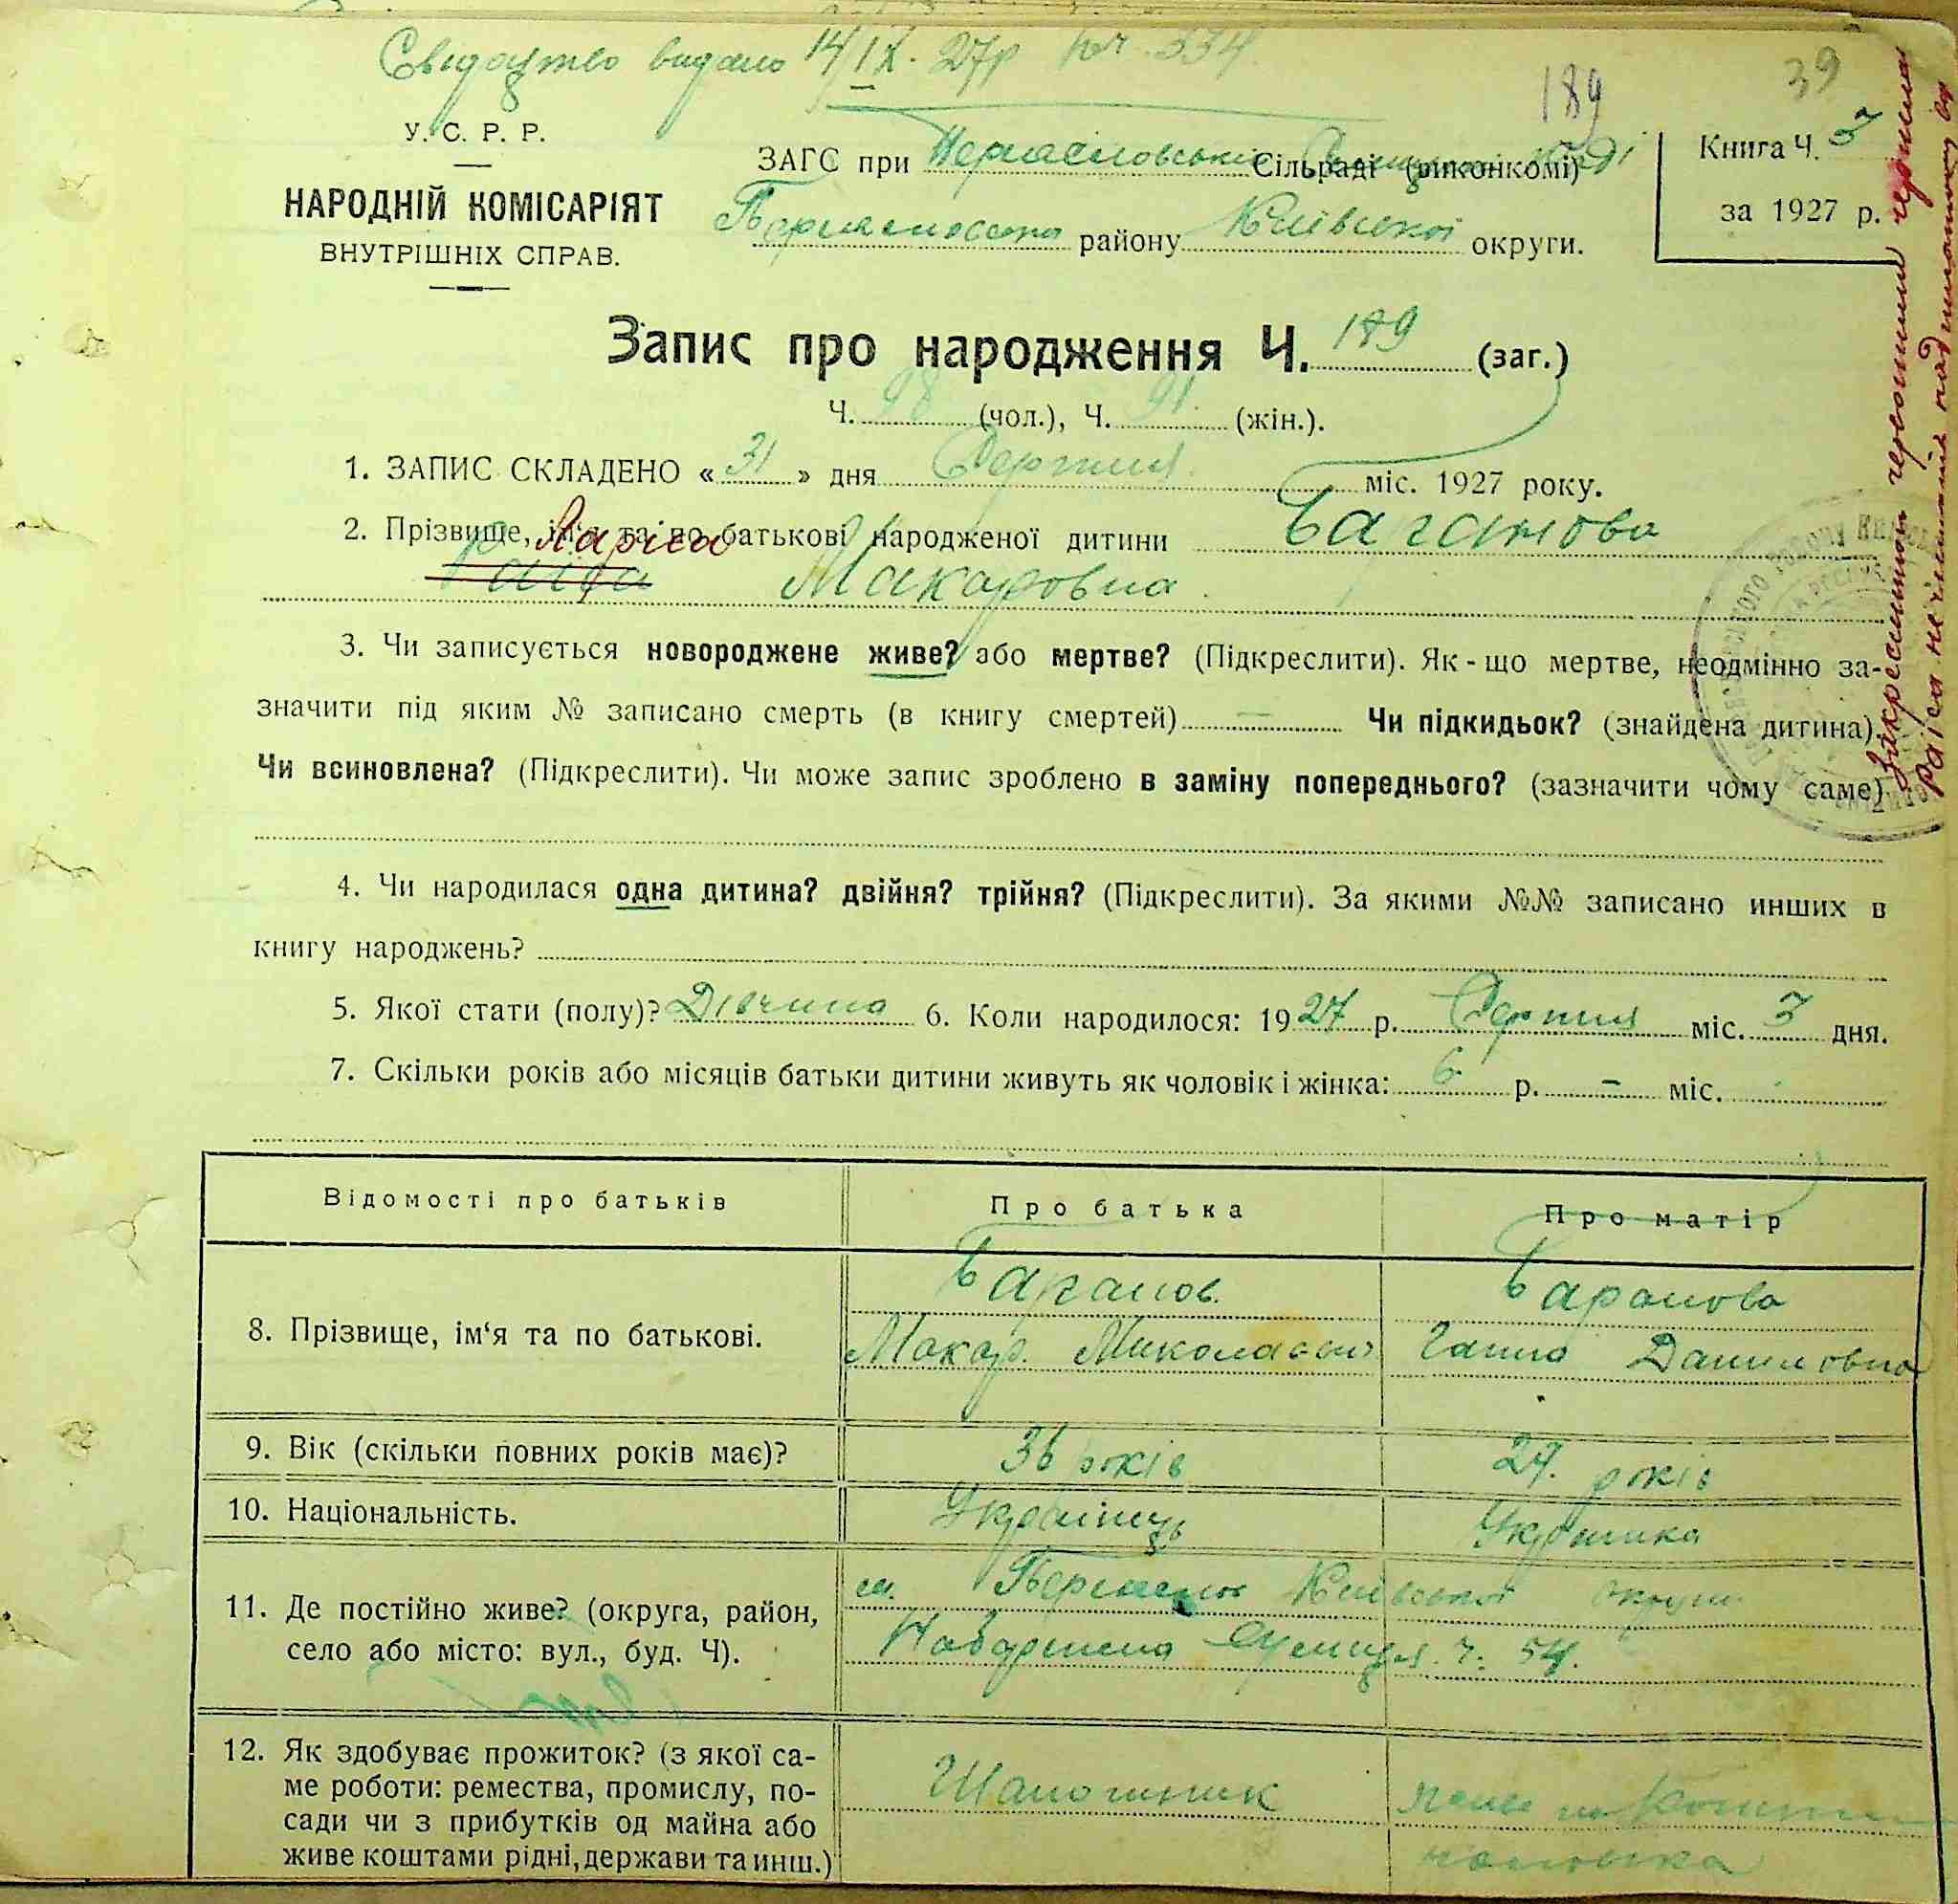 Свідоцтво видано 14/IX. 27р № 334.
189
39
У. С. Р. Р.
НАРОДНІЙ КОМІСАРІЯТ
ВНУТРІШНІХ СПРАВ.
ЗАГС при Сільраді (виконкомі)
району Київської округи.
Книга Ч. 3
за 1927 р.
Запис про народження Ч. 189 (заг.)
Ч. 98 (чол.), Ч. 91 (жін.).
1. ЗАПИС СКЛАДЕНО « 31 » дня Серпня міс. 1927 року.
2. Прізвище, ім‘я та по батькові народженої дитини Баранова
Раїса Лариса Макаровна
3. Чи записується новороджене живе? або мертве? (Підкреслити). Як - що мертве, неодмінно за-
значити під яким № записано смерть (в книгу смертей) — Чи підкидьок? (знайдена дитина).
Чи всиновлена? (Підкреслити). Чи може запис зроблено в заміну попереднього? (зазначити чому саме)
4. Чи народилася одна дитина? двійня? трійня? (Підкреслити). За якими №№ записано инших в
книгу народжень?
5. Якої стати (полу)? Дівчина 6. Коли народилося: 1927 р. Серпня міс. 3 дня.
7. Скільки років або місяців батьки дитини живуть як чоловік і жінка: 6 р. – міс.
Відомості про батьків Про батька Про матір
8. Прізвище, ім‘я та по батькові.
Баранов. Баранова
Макар. Ганна Даниловна
9. Вік (скільки повних років має)? 36 років 27. років
10. Національність. Українець Українка
11. Де постійно живе? (округа, район,
село або місто: вул., буд. Ч).
м. Київської округи
ч. 54.
12. Як здобуває прожиток? (з якої са-
ме роботи: ремества, промислу, по-
сади чи з прибутків од майна або
живе коштами рідні, держави та инш.)
Шапошник
чоловіка
Закреслиною червоним чернилом
Раїса не читати